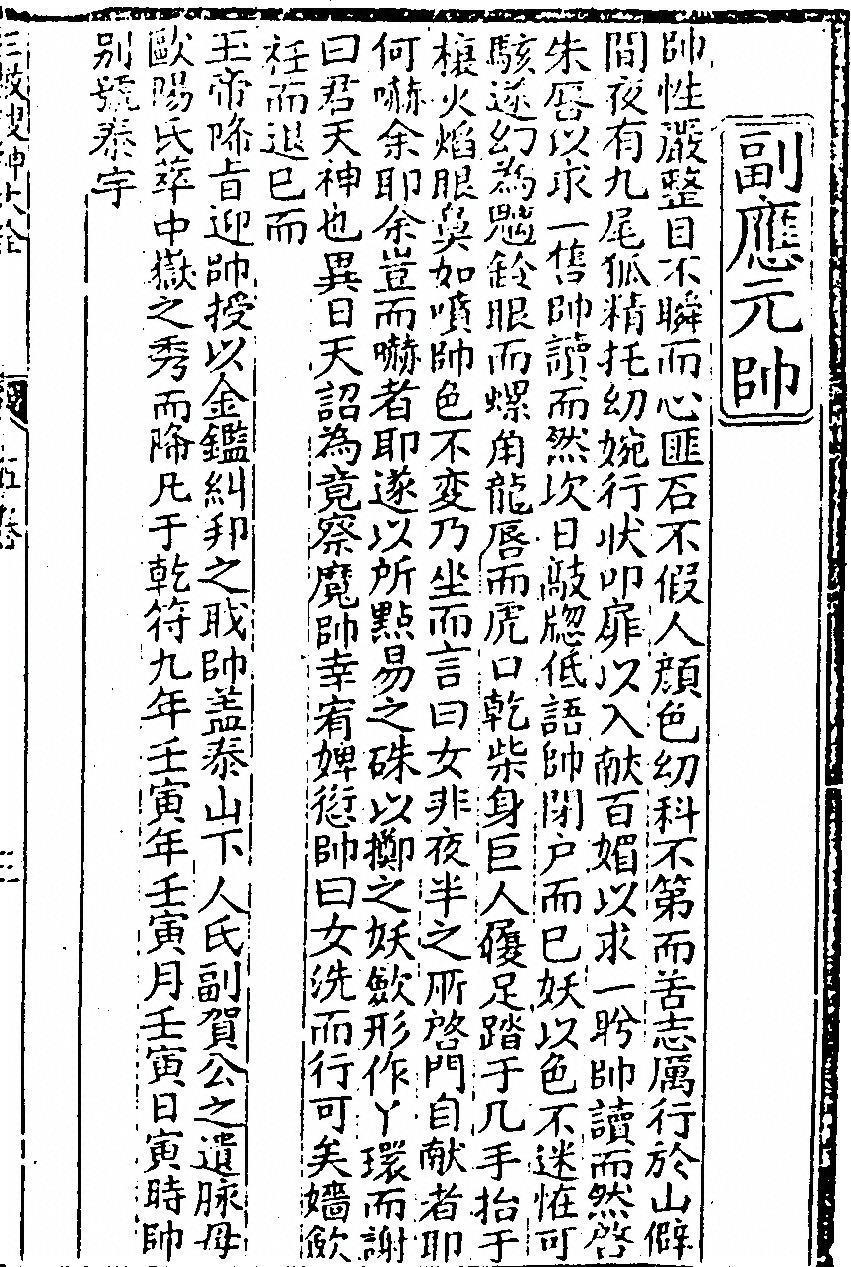 副應元帥
帥性嚴整目不瞬而心匪石不假人顏色幼科不第而苦志厲行於山僻
間夜有九尾狐精托幼婉行状叩扉以入献百媚以求一盻帥讀而然啓
朱唇以求一售帥讀而然次日敲牎低語帥閉户而已妖以色不迷恠可
駭遂幻為魈鈴眼而螺角龍唇而虎口乾柴身巨人履足踏于几手抬于
榱火焰眼鼻如噴帥色不变乃坐而言曰女非夜半之所啓門自献者耶
何嚇余耶余豈而嚇者耶遂以所點易之硃以擲之妖歛形作丫環而謝
曰君天神也異日天詔為竟察魔帥幸宥婢愆帥曰女洗而行可矣嬙歛
衽而退已而
玉帝降旨迎帥授以金鑑糾邦之職帥盖泰山下人氏副賀公之遺脉母
歐陽氏萃中嶽之秀而降凡于乾符九年壬寅年壬寅月壬寅日寅時帥
别號泰宇
三教搜神大全
五卷